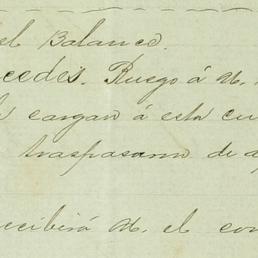 el Balance.
cedes. Ruego á U.
cargan á esta cu
traspasaron de d
ecibirá U. el con